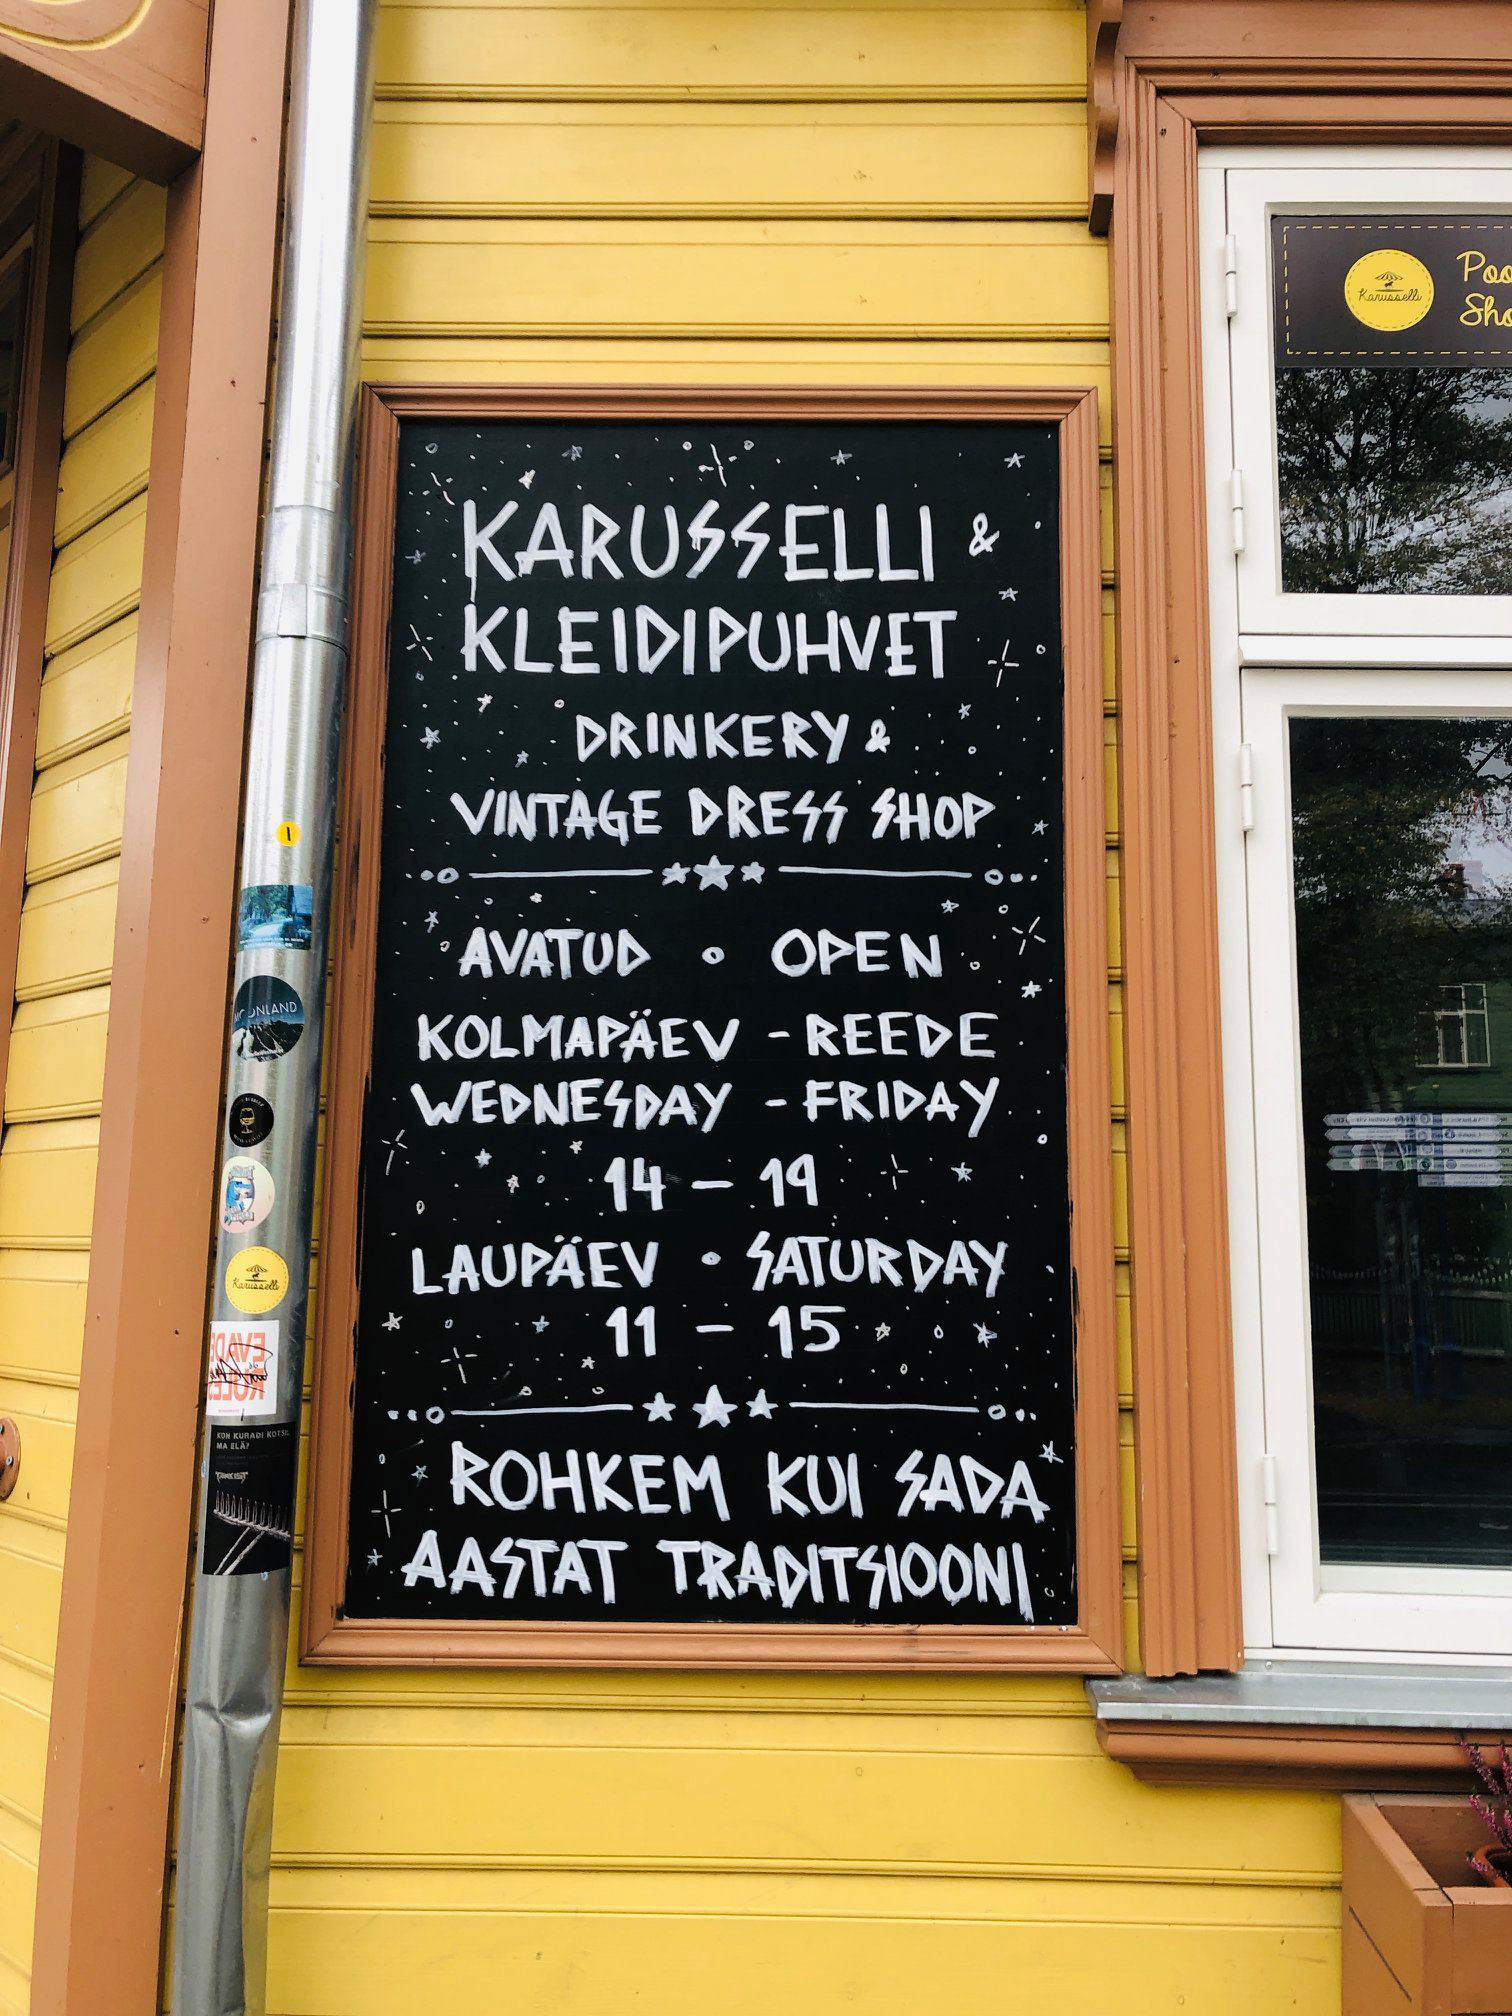 KARUSSELLI &
KLEIDIPUHVET
DRINKERY &
VINTAGE DRESS SHOP
AVATUD • OPEN
KOLMAPÄEV - REEDE
WEDNESDAY - FRIDAY
14 - 19
LAUPÄEV • SATURDAY
11 - 15
ROHKEM KUI SADA
AASTAT TRADITSIOONI
Karusselli
Poo
Sho
I
MOONLAND
Karusselli
EVADE
RULES
KON KURADI KOTSIL
MA ELÄ?